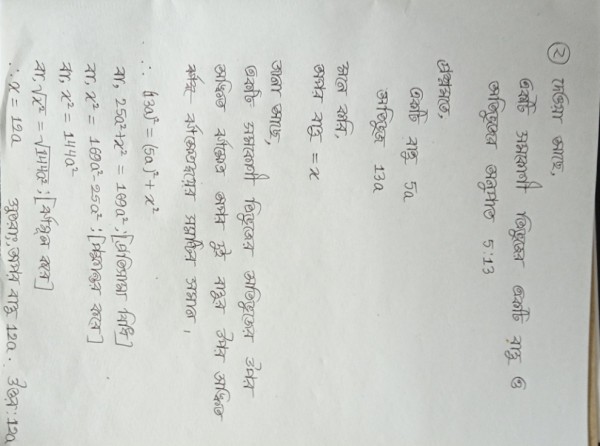 ② দেওয়া আছে,
একটি সমকোণী ত্রিভুজের একটি বাহু ও
অতিভুজের অনুপাত 5:13
প্রশ্নমতে,
একটি বাহু 5a
অতিভুজ 13a
মনে করি,
অপর বাহু = x
জানা আছে,
একটি সমকোণী ত্রিভুজের অতিভুজের উপর
অঙ্কিত বর্গক্ষেত্র অপর দুই বাহুর উপর অঙ্কিত
বর্গক্ষেত্রের সমষ্টির সমান।
∴ (13a)² = (5a)² + x²
বা, 25a² + x² = 169a² ; [প্রতিসাম্য বিধি]
বা, x² = 169a² - 25a² ; [পক্ষান্তর করে]
বা, x² = 144a²
বা, √x² = √144a² ; [বর্গমূল করে]
∴ x = 12a সুতরাং, অপর বাহু 12a. উত্তর: 12a